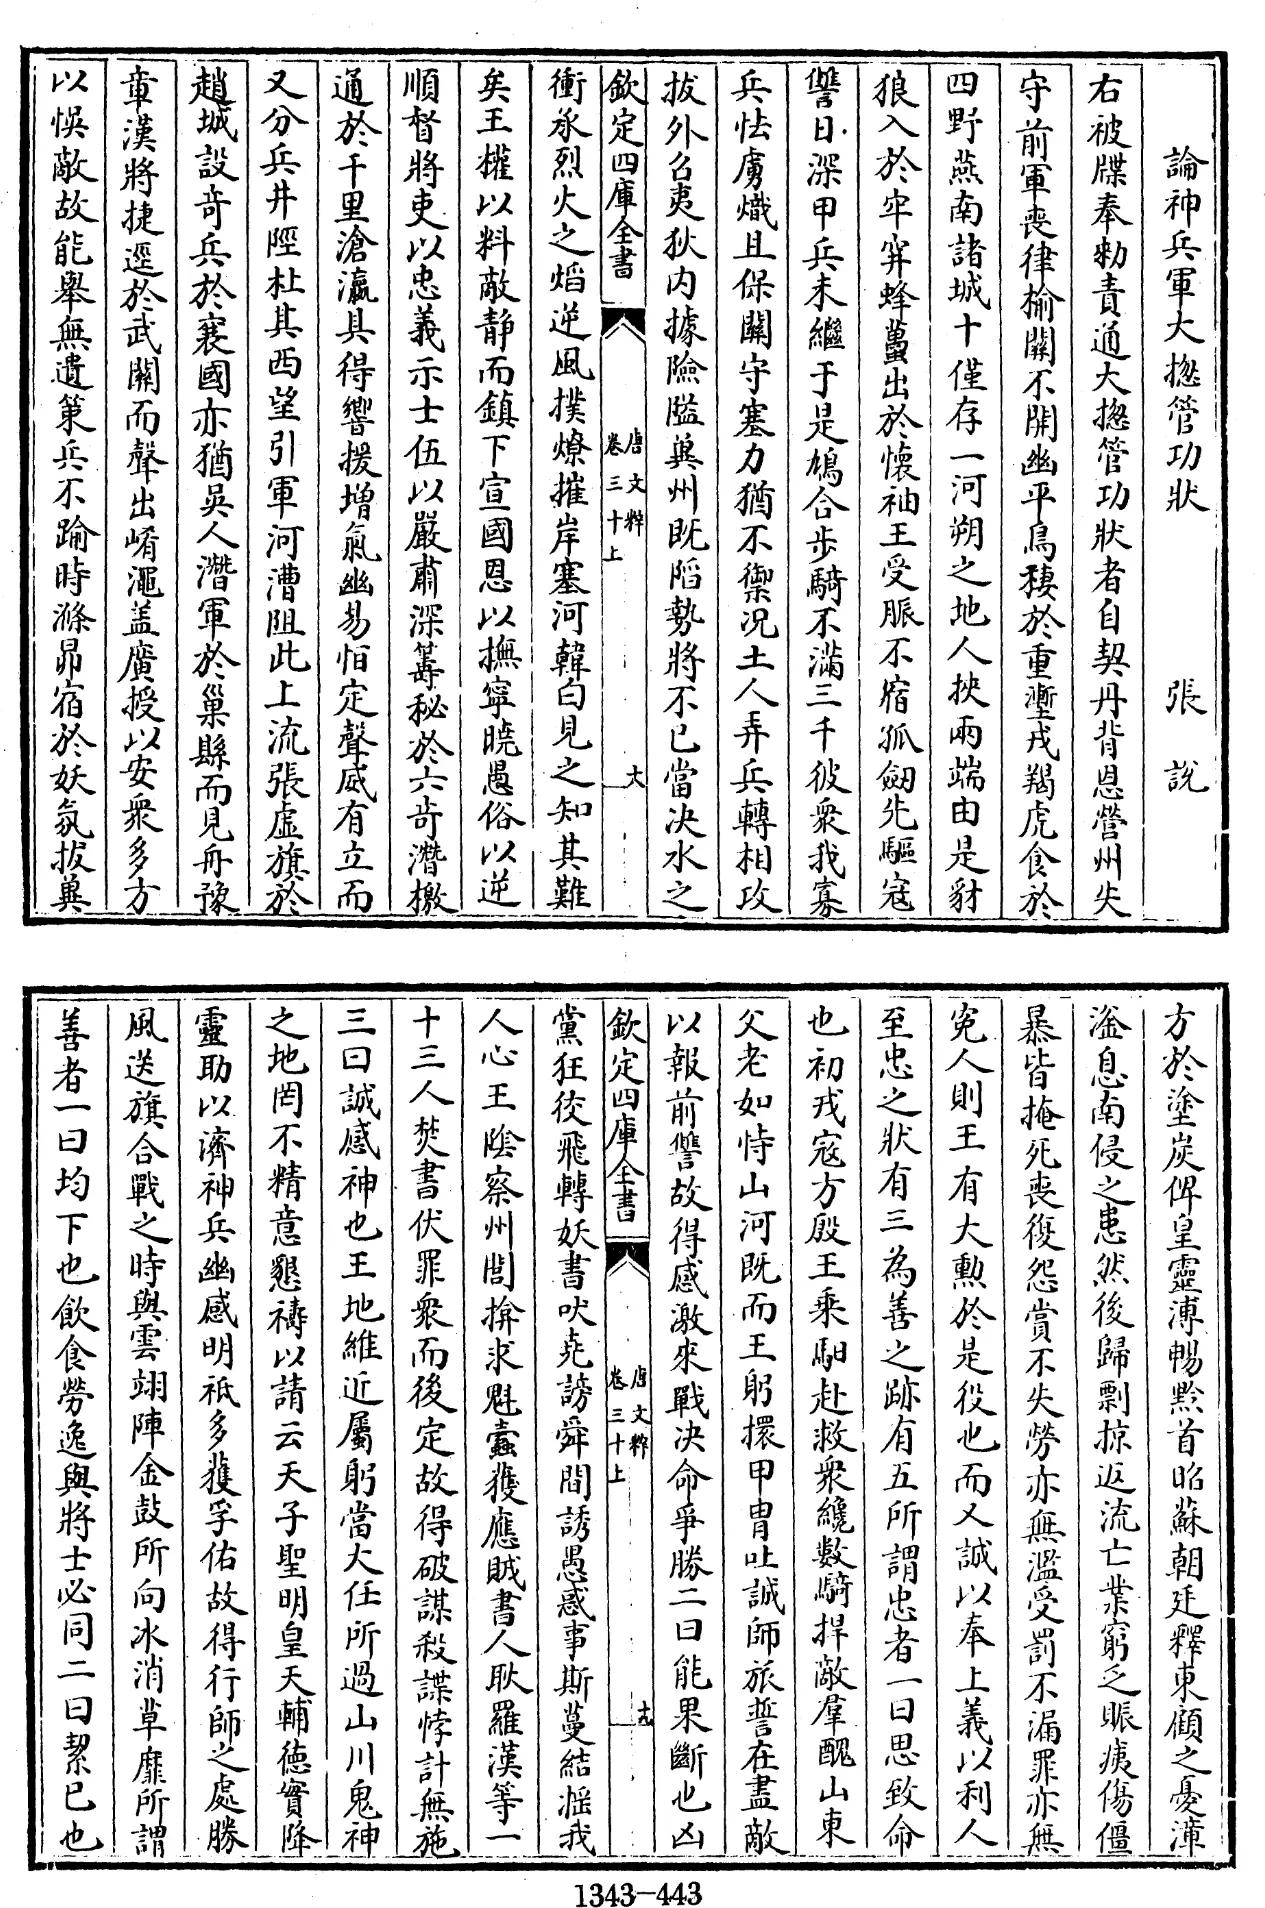 論神兵軍大揔管功狀　張說
右被牒奉勑責通大揔管功狀者自契丹背恩營州失
守前軍喪律榆關不開幽平鳥棲於重壍戎羯虎食於
四野燕南諸城十僅存一河朔之地人挾兩端由是豺
狼入於牢穽蜂蠆出於懷袖王受脤不宿孤劒先驅寇
讐日深甲兵未繼于是鳩合步騎不滿三千彼衆我寡
兵怯虜熾且保關守塞力猶不禦况土人弄兵轉相攻
拔外召夷狄内據險隘兾州既䧟勢將不已當决水之
欽定四庫全書
唐文粹
卷三十上
大
衝承烈火之熖逆風撲燎摧岸塞河韓白見之知其難
矣王權以料敵静而鎮下宣國恩以撫寧曉愚俗以逆
順督將吏以忠義示士伍以嚴肅深籌秘於六奇潛檄
通於千里滄瀛具得響援增氣幽易怕定聲威有立而
又分兵井陘杜其西望引軍河漕阻此上流張虛旗於
趙城設奇兵於襄國亦猶吳人潛軍於巢縣而見舟豫
章漢將捷逕於武關而聲出崤澠盖廣授以安衆多方
以悞敵故能舉無遺策兵不踰時滌昴宿於妖氛拔兾
方於塗炭俾皇靈溥暢黔首昭蘇朝廷釋東顧之憂漳
滏息南侵之患然後歸剽掠返流亡業窮乏賑痍傷僵
暴皆掩死喪復怨賞不失勞亦無濫受罰不漏罪亦無
寃人則王有大勲於是役也而又誠以奉上義以利人
至忠之狀有三為善之跡有五所謂忠者一曰思致命
也初戎寇方殷王乘馹赴救衆纔數騎捍敵羣醜山東
父老如恃山河既而王躬擐甲胄吐誠師旅誓在盡敵
以報前讐故得感激來戰决命爭勝二曰能果斷也凶
欽定四庫全書
唐文粹
卷三十上
十九
黨狂狡飛轉妖書吠堯謗舜間誘愚惑事斯蔓結揺我
人心王陰察州閭搒求魁蠧獲應賊書人耿羅漢等一
十三人焚書伏罪衆而後定故得破謀殺諜悖計無施
三曰誠感神也王地維近屬躬當大任所過山川鬼神
之地罔不精意懇禱以請云天子聖明皇天輔德實降
靈助以濟神兵幽感明祇多獲孚佑故得行師之處勝
風送旗合戰之時與雲翊陣金鼓所向冰消草靡所謂
善者一曰均下也飲食勞逸與將士必同二曰絜已也
1343-443